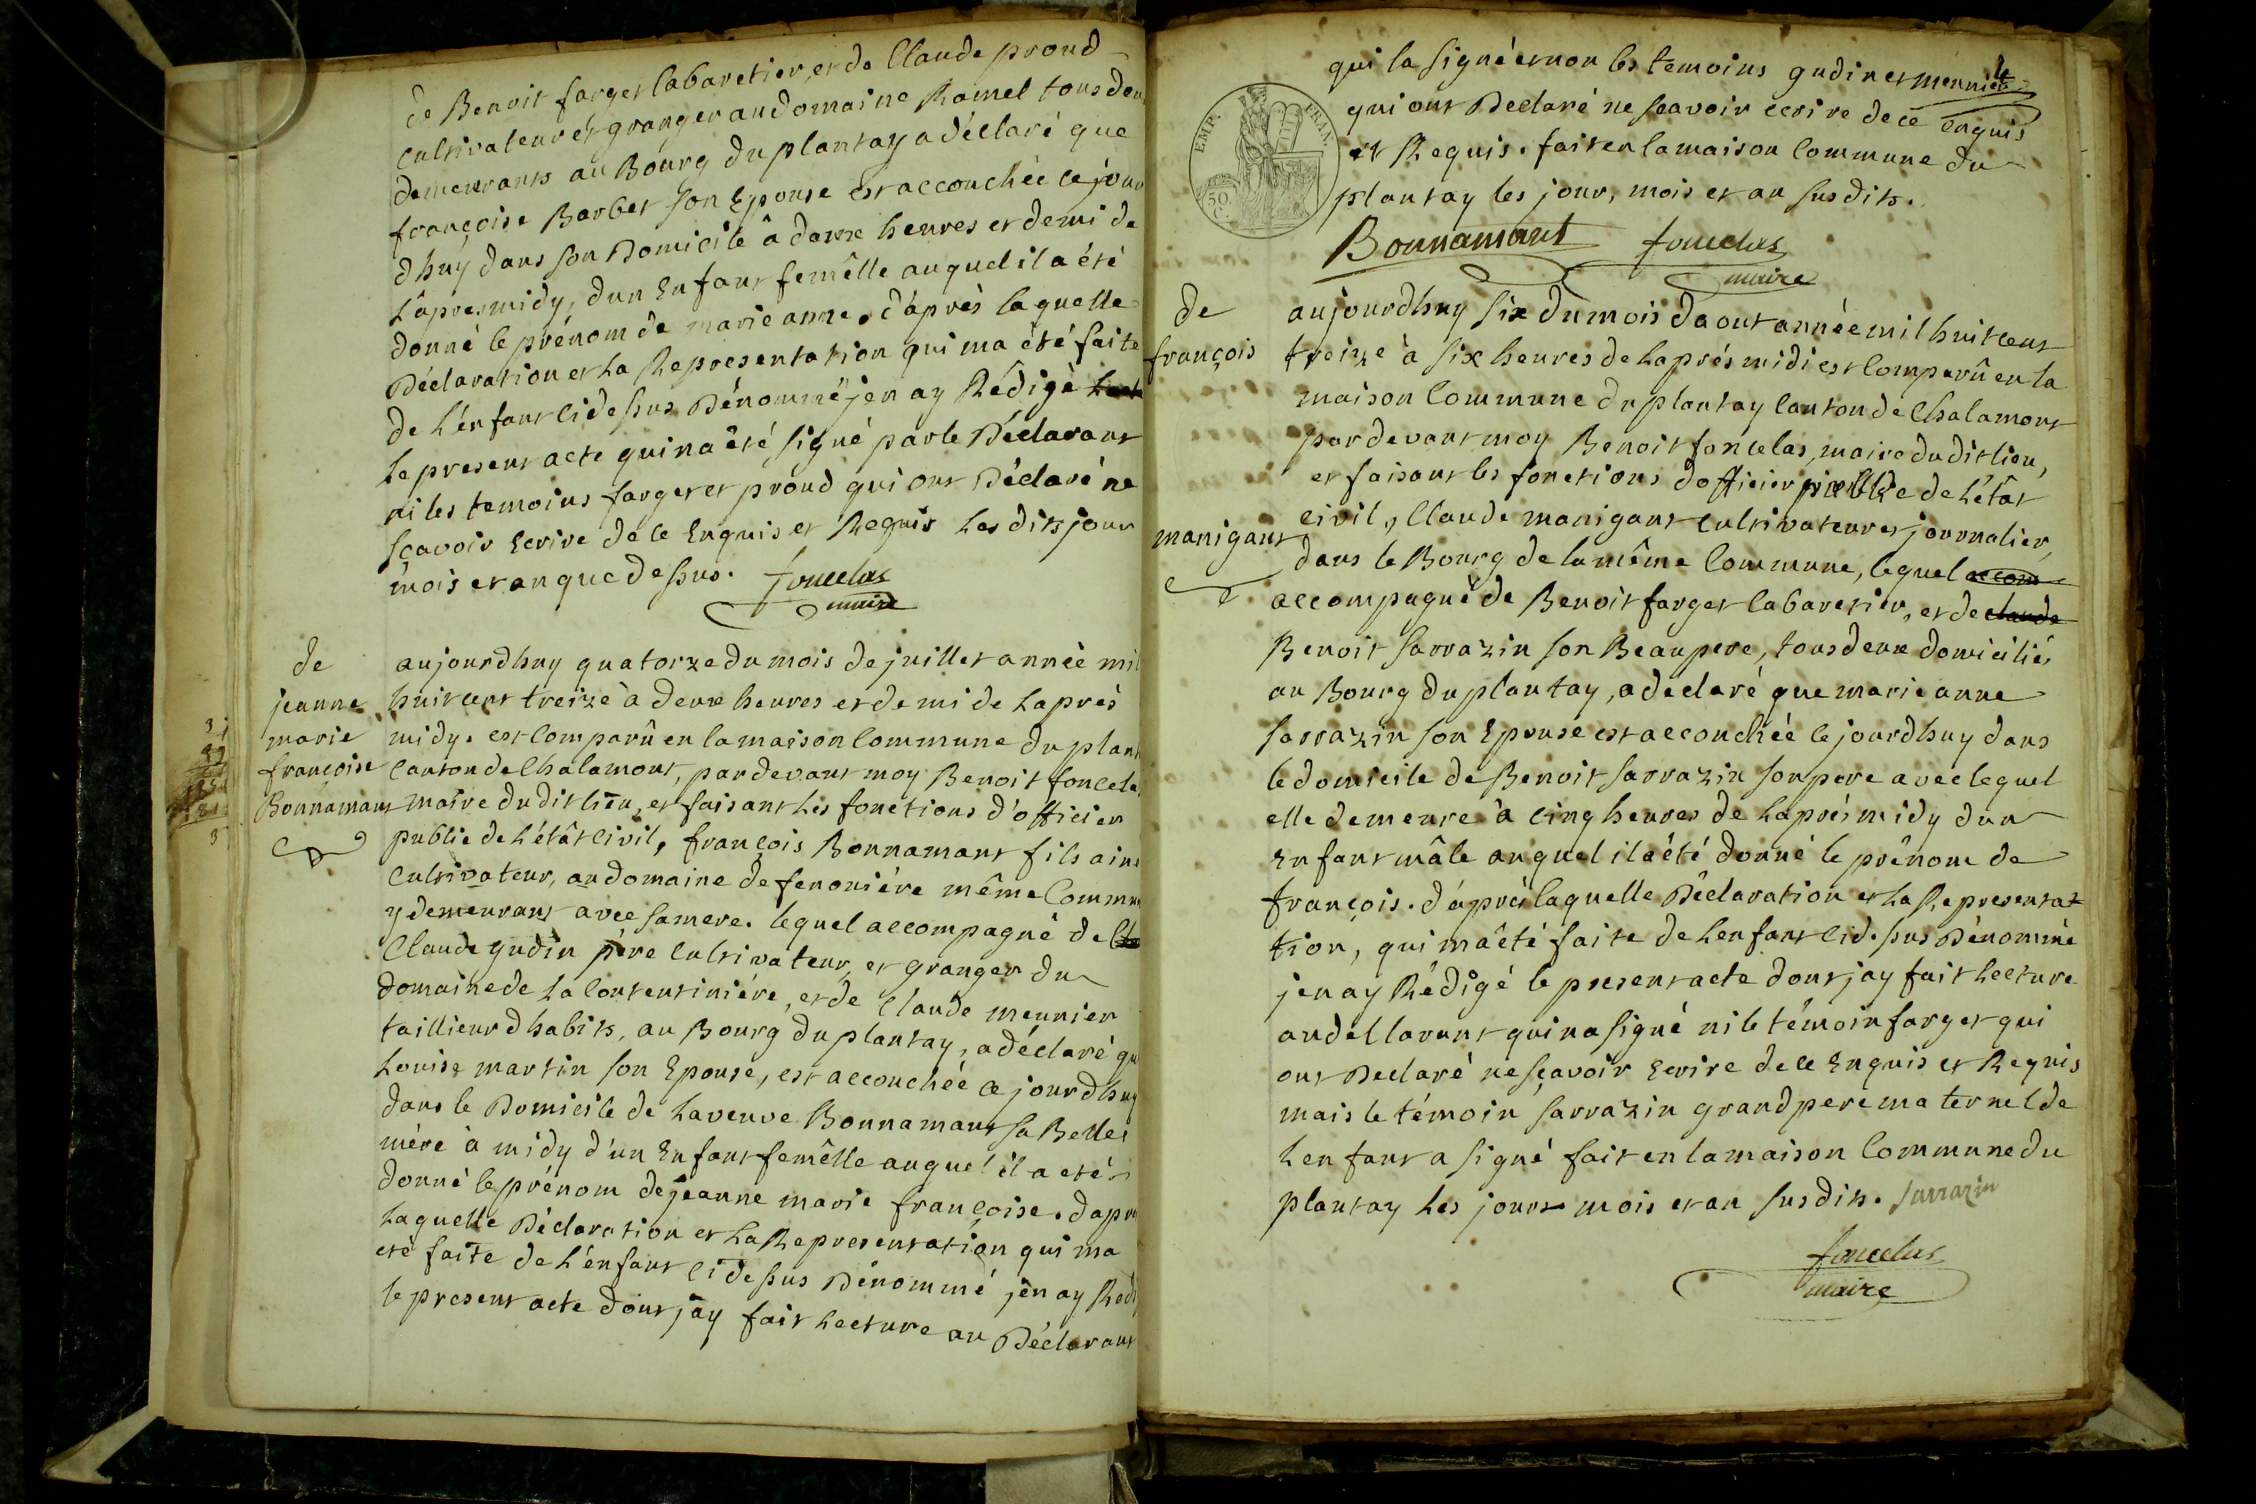 de Benoit farget Cabaretier, et de Claude proud
Cultivateur et granger au domaine Ramel tous deux
demeurants au Bourg du plantay a déclaré que
françoise Barbet son Epouse est accouchée ce jour
dhuy dans son Domicile â deux heures et demi de
L'apresmidy, dun Enfant femêlle auquel il a été
donné le prénom de marie anne. d'après laquelle
Déclaration et La Representation qui ma été faite
de L'énfant ci dessus Dénommé j'en ay Rédigé
Le present acte qui n'a êté signé par le Déclarant
ni les temoins farget et proud qui ont Déclaré ne
sçavoir Ecrire de ce Enquis et Requis Les dits jour
mois et an que dessus. foncelas
maire
de
jeanne
marie
françoise
Bonnamant
aujourdhuy quatorze du mois de juillet année mil
huit cent treize à deux heures et demi de Laprès
midy. est Comparû en la maison Commune du plant
Canton de Chalamont, pardevant moy Benoit foncela
maire dudit lieu, et faisant Les fonctions d'officier
public de L'étât Civil, françois Bonnamant fils ainé
Cultivateur, au domaine de fenoniére même Commu
y demeurant avec sa mere. lequel accompagné de
Claude gudin père Cultivateur, et granger du
domaine de La Contentiniére, et de Claude meunier
taillieur dhabits, au Bourg du plantay, a déclaré qu
Louise martin son Epouse, est accouchée ce jourdhuy
dans le Domicile de La veuve Bonnamant sa Belle
mére à midy d'un Enfant femêlle auquel il a eté
donné le prénom de jeanne marie françoise. dapr
Laquelle Déclaration et La Representation qui ma
eté faite de L'énfant ci dessus Dénommé j'en ay Red
le present acte dont jay fait Lecture au Déclarant
4
qui la signé et non les temoins gudin et meunier
qui ont Declaré ne scavoir ecrire de ce enquis
et Requis. fait en la maison Commune du
plantay les jour, mois et an susdits.
EMP. FRAN.
50
C.
Bonnamant foncelas
maire
de
françois
manigant
aujourdhuy six du mois daout année mil huit cent
treize à six heures de Laprés midi est Comparû en la
maison Commune du plantay Canton de Chalamont
pardevant moy Benoit foncelas, maire dudit lieu,
et faisant les fonctions dofficier public de L'étât
civil, Claude manigant Cultivateur et journalier,
dans le Bourg de la même Commune, lequel accom
accompagné de Benoit farget Cabaretier, et de claude
Benoit sarrazin son Beaupere, tous deux domiciliés
au Bourg du plantay, a declaré que marie anne
sarrazin son Epouse est accouchéé ce jourdhuy dans
le domicile de Benoit sarrazin son pere avec lequel
elle demeure à cinq heures de Laprés midy dun
Enfant mâle auquel il a été donné le prênom de
françois. d'après laquelle Déclaration et La Representat-
tion, qui m'a été faite de Lenfant ci dessus Dénommé
jen ay Rédigé le present acte dont jay fait Lecture
au dellarant qui na signé ni le témoin farget qui
ont Declaré ne sçavoir Ecrire de ce Enquis et Requis
mais le témoin sarrazin grand pere maternel de
Lenfant a signé fait en la maison Commune du
plantay Les jours mois et an susdits. sarrazin
foncelas
maire